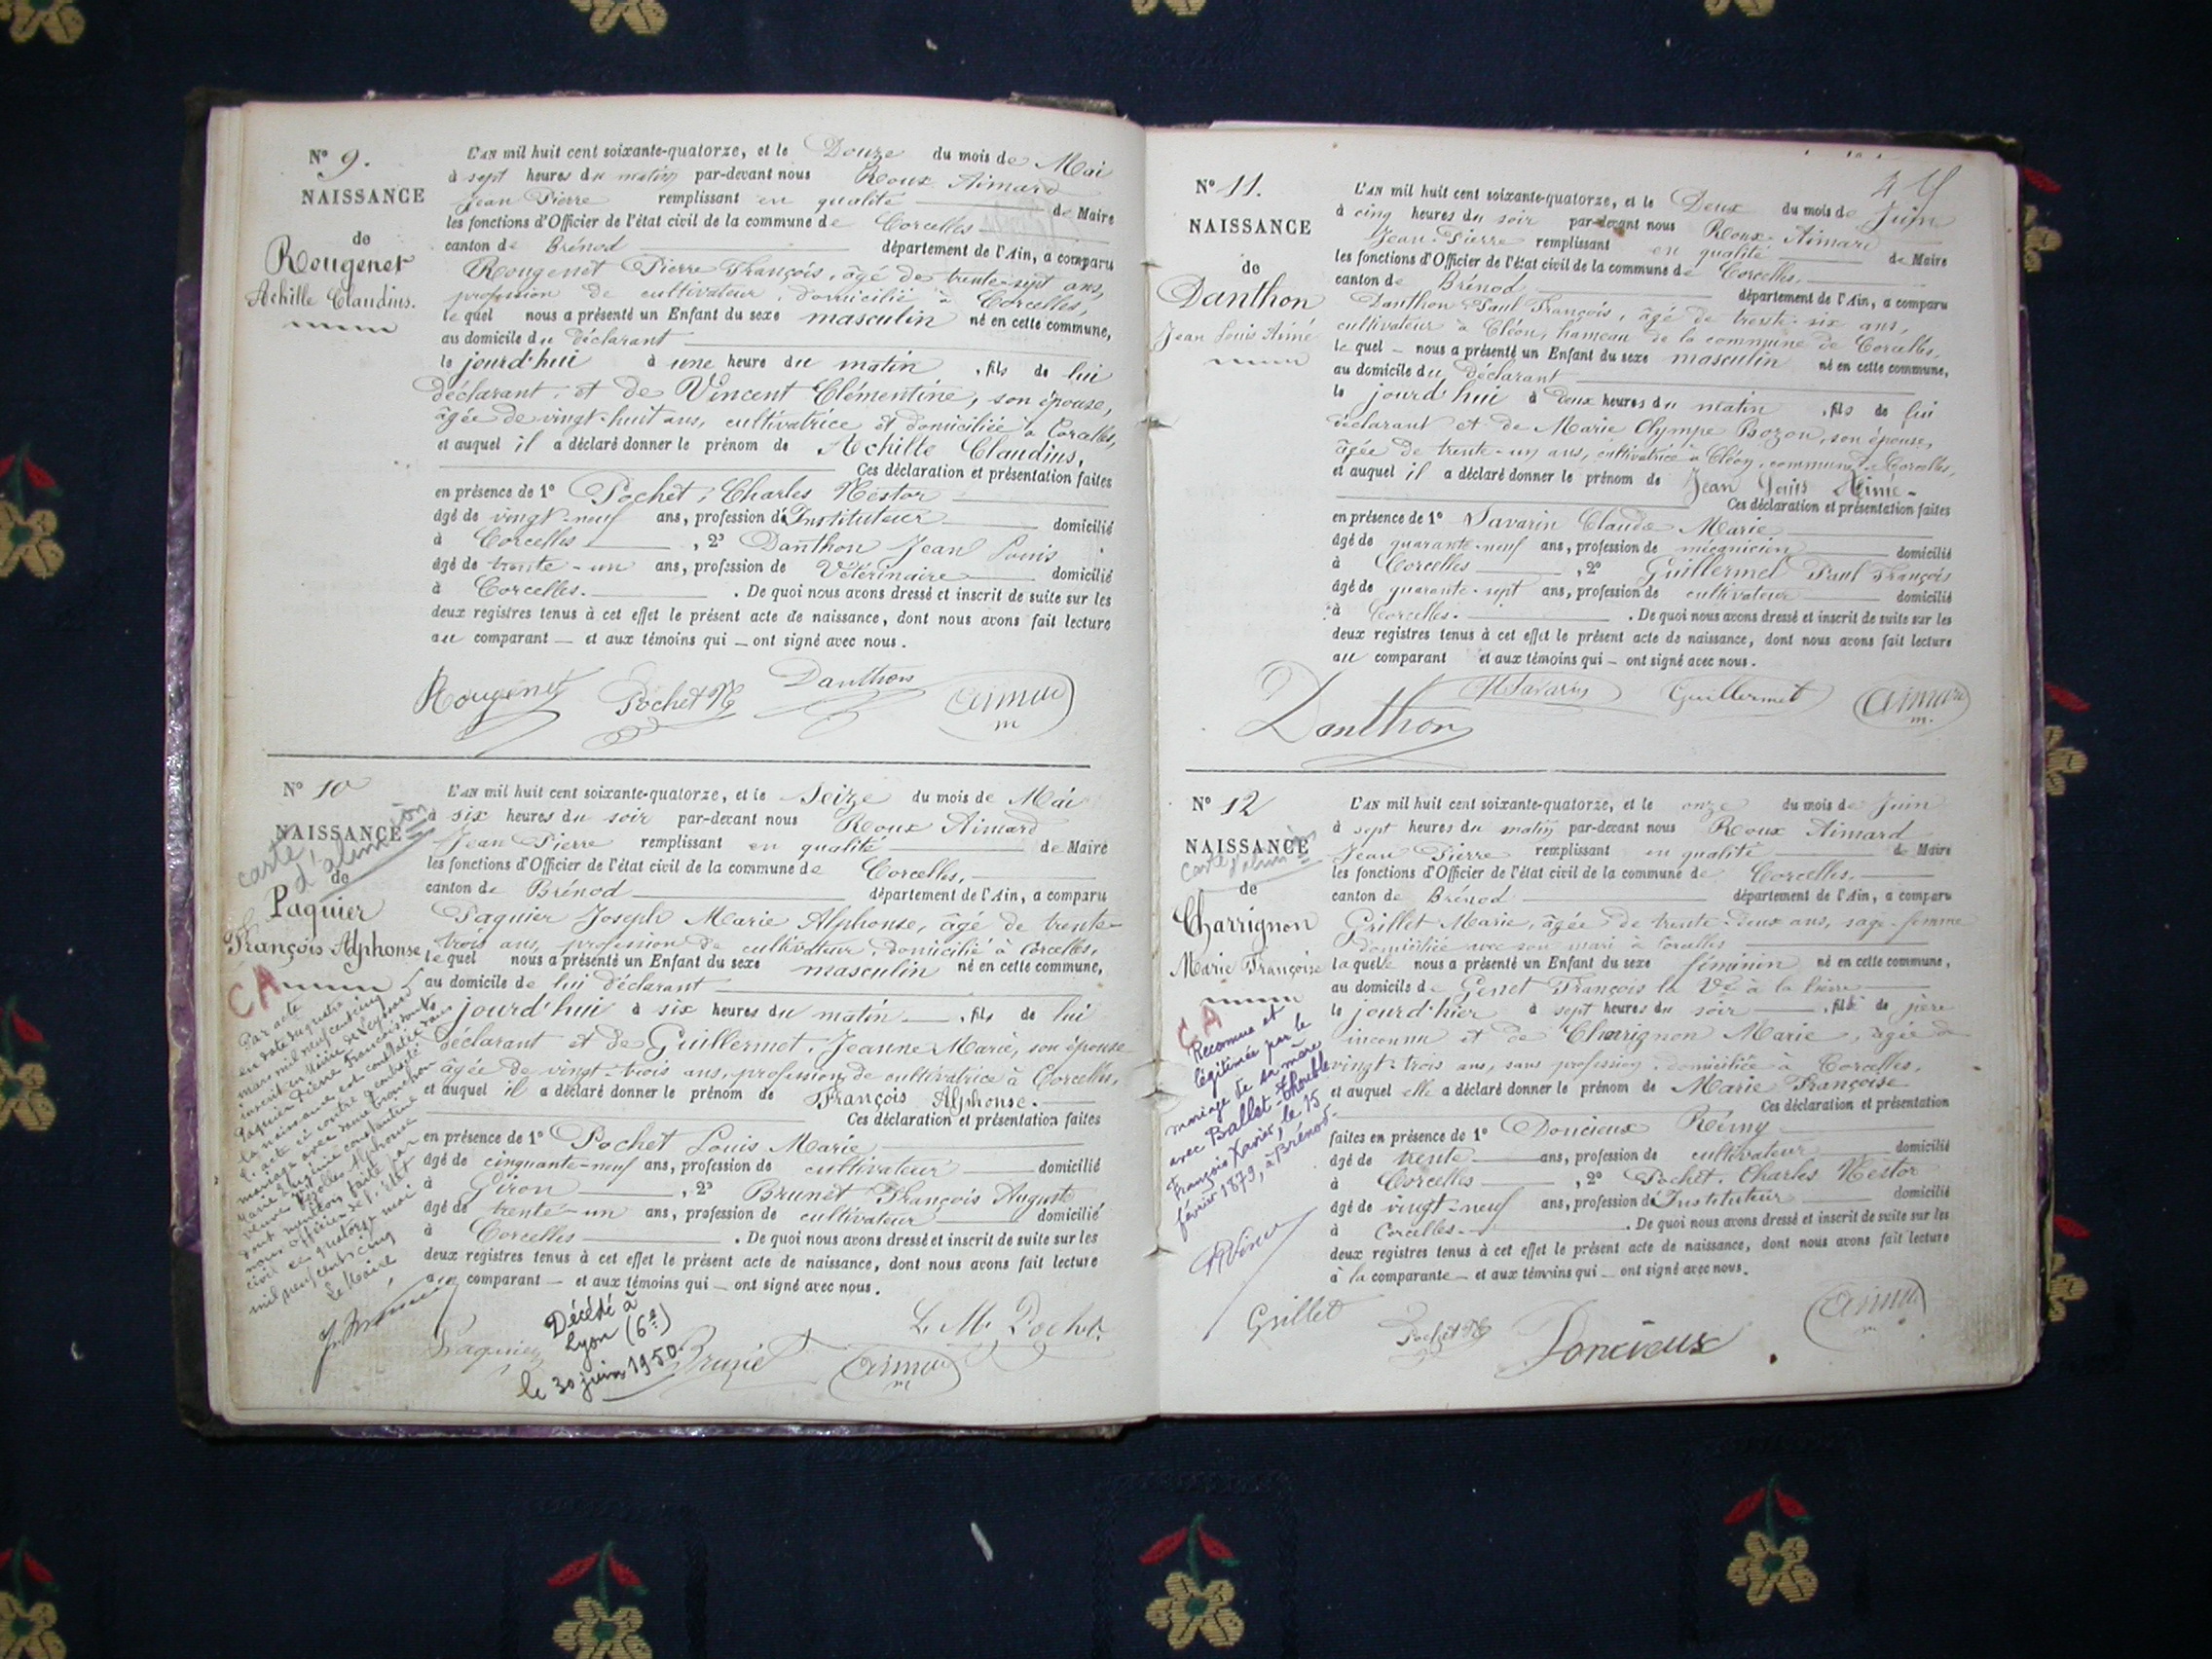 N° 9.
NAISSANCE
de
Rougenet
Achille Claudius.
L'AN mil huit cent soixante-quatorze, et le Douze du mois de Mai
à sept heures du matin par-devant nous Roux Aimard
Jean Pierre remplissant en qualité de Maire
les fonctions d'Officier de l'état civil de la commune de Corcelles
canton de Brénod département de l'Ain, a comparu
Rougenet Pierre François, âgé de trente-sept ans,
profession de cultivateur, domicilié à Corcelles,
lequel nous a présenté un Enfant du sexe masculin né en cette commune,
au domicile du déclarant
le jourd'hui à une heure du matin, fils de lui
déclarant, et de Vincent Clémentine, son épouse,
âgée de vingt-huit ans, cultivatrice et domiciliée à Corcelles,
et auquel il a déclaré donner le prénom de Achille Claudius.
Ces déclaration et présentation faites
en présence de 1° Pochet, Charles Nestor
âgé de vingt-neuf ans, profession d'Instituteur domicilié
à Corcelles, 2° Danthon Jean Louis
âgé de trente-un ans, profession de Vétérinaire domicilié
à Corcelles. De quoi nous avons dressé et inscrit de suite sur les
deux registres tenus à cet effet le présent acte de naissance, dont nous avons fait lecture
au comparant — et aux témoins qui — ont signé avec nous.
Rougenet Pochet N Danthon Aimard
m
N° 10
NAISSANCE
carte d'alimion
de
Paquier
François Alphonse
CA
Par acte
en date du quatre
mars mil neuf cent cinq
inscrit en Mairie de Leyssard
Paquier Pierre François dont
la naissance est constatée dans
l'acte ci contre a contracté
mariage avec dame
Marie Eugénie Constantine
veuve Alphonse
dont mention faite par
nous officier de l'état
civil ce quatorze mai
mil neuf cent cinq
Le Maire
L'AN mil huit cent soixante-quatorze, et le Seize du mois de Mai
à six heures du soir par-devant nous Roux Aimard
Jean Pierre remplissant en qualité de Maire
les fonctions d'Officier de l'état civil de la commune de Corcelles,
canton de Brénod département de l'Ain, a comparu
Paquier Joseph Marie Alphonse, âgé de trente-
trois ans, profession de cultivateur, domicilié à Corcelles,
lequel nous a présenté un Enfant du sexe masculin né en cette commune,
au domicile de lui déclarant
jourd'hui à six heures du matin —, fils de lui
déclarant et de Guillermet, Jeanne Marie, son épouse
âgée de vingt-trois ans, profession de cultivatrice à Corcelles,
et auquel il a déclaré donner le prénom de François Alphonse.
Ces déclaration et présentation faites
en présence de 1° Pochet Louis Marie
âgé de cinquante-neuf ans, profession de cultivateur domicilié
à Giron, 2° Brunet François Auguste
âgé de trente-un ans, profession de cultivateur domicilié
à Corcelles. De quoi nous avons dressé et inscrit de suite sur les
deux registres tenus à cet effet le présent acte de naissance, dont nous avons fait lecture
au comparant — et aux témoins qui — ont signé avec nous.
Décédé à
Lyon (6e)
le 30 juin 1950
Paquier Brunet Aimard L. M. Pochet
m
45
N° 11.
NAISSANCE
de
Danthon
Jean Louis Aimé
L'AN mil huit cent soixante-quatorze, et le Deux du mois de Juin
à cinq heures du soir par-devant nous Roux Aimard
Jean-Pierre remplissant en qualité de Maire
les fonctions d'Officier de l'état civil de la commune de Corcelles.
canton de Brénod département de l'Ain, a comparu
Danthon Paul François, âgé de trente-six ans,
cultivateur à Cléon, hameau de la commune de Corcelles,
lequel — nous a présenté un Enfant du sexe masculin né en cette commune,
au domicile du déclarant
le jourd'hui à deux heures du matin, fils de lui
déclarant et de Marie Olympe Bozon, son épouse,
âgée de trente-un ans, cultivatrice à Cléon, commune de Corcelles,
et auquel il a déclaré donner le prénom de Jean Louis Aimé —
Ces déclaration et présentation faites
en présence de 1° Savarin Claude Marie
âgé de quarante-neuf ans, profession de mécanicien domicilié
à Corcelles, 2° Guillermet Paul François
âgé de quarante-sept ans, profession de cultivateur domicilié
à Corcelles. De quoi nous avons dressé et inscrit de suite sur les
deux registres tenus à cet effet le présent acte de naissance, dont nous avons fait lecture
au comparant et aux témoins qui — ont signé avec nous.
Danthon Savarin Guillermet Aimard
m.
N° 12
NAISSANCE
carte d'alimion
de
Charrignon
Marie Françoise
CA
Reconnue et
légitimée par le
mariage de sa mère
avec Ballet-Thouble
François Xavier, le 15
février 1879, à Brénod.
L'AN mil huit cent soixante-quatorze, et le onze du mois de Juin
à sept heures du matin par-devant nous Roux Aimard
Jean Pierre remplissant en qualité de Maire
les fonctions d'Officier de l'état civil de la commune de Corcelles.
canton de Brénod département de l'Ain, a comparu
Grillet Marie, âgée de trente-deux ans, sage-femme
domiciliée avec son mari à Corcelles
laquelle nous a présenté un Enfant du sexe féminin né en cette commune,
au domicile de Genet François la Ve à la
le jourd'hier à sept heures du soir —, fille de père
inconnu et de Charrignon Marie, âgée de
vingt-trois ans, sans profession, domiciliée à Corcelles,
et auquel elle a déclaré donner le prénom de Marie Françoise
Ces déclaration et présentation
faites en présence de 1° Doncieux Rémy
âgé de trente ans, profession de cultivateur domicilié
à Corcelles, 2° Pochet, Charles Nestor
âgé de vingt-neuf ans, profession d'Instituteur domicilié
à Corcelles. De quoi nous avons dressé et inscrit de suite sur les
deux registres tenus à cet effet le présent acte de naissance, dont nous avons fait lecture
à la comparante — et aux témoins qui — ont signé avec nous.
Grillet Pochet N Doncieux Aimard
m